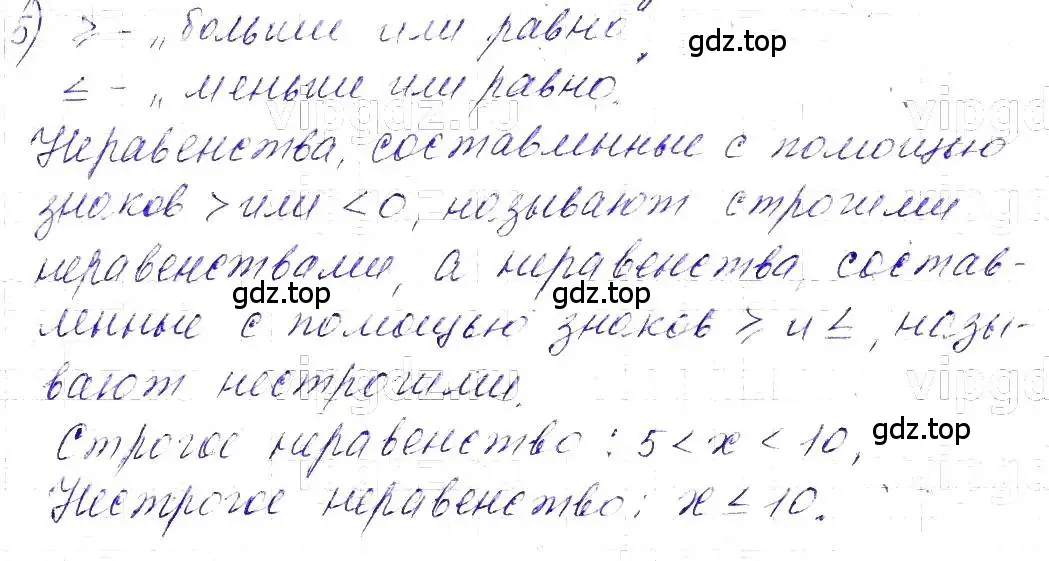 5) ⩾ - „больше или равно",
gdz.top
≤ - „меньше или равно.
vipgdz.ru
vipgd
Неравенства, составленные с помощью
знаков > или < 0, называют строгими
неравенствами, а неравенства, состав-
gdz.top
gdz.top
ленные с помощью знаков ⩾ и ≤, назы-
вают нестрогими.
vipgdz
vipgd
Строгое неравенство: 5 < x < 10,
gdz.top
Нестрогое неравенство: x ≤ 10.